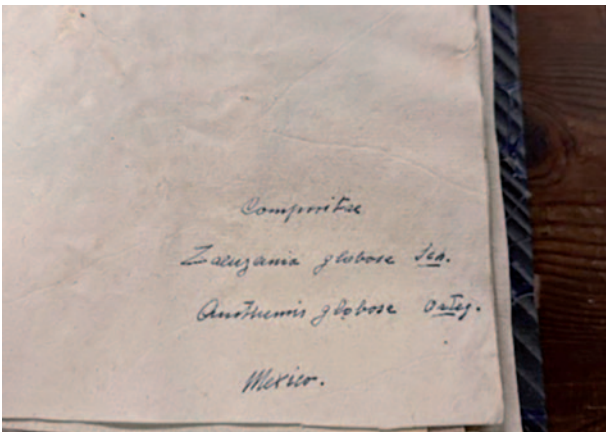 Compositae
Zaluzania globose Sch.
Anthemis globose Orteg.
Mexico.